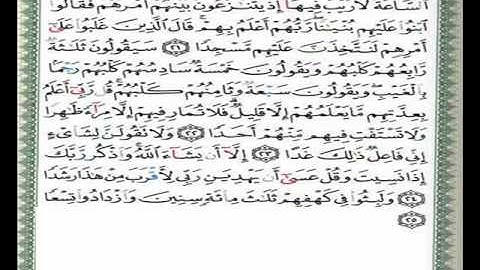 ٱلسَّاعَةَ لَا رَيْبَ فِيهَآ إِذْ يَتَنَـٰزَعُونَ بَيْنَهُمْ أَمْرَهُمْ فَقَالُوا۟
ٱبْنُوا۟ عَلَيْهِم بُنْيَـٰنًا رَّبُّهُمْ أَعْلَمُ بِهِمْ قَالَ ٱلَّذِينَ غَلَبُوا۟ عَلَىٰٓ
أَمْرِهِمْ لَنَتَّخِذَنَّ عَلَيْهِم مَّسْجِدًا ٢١ سَيَقُولُونَ ثَلَـٰثَةٌ
رَّابِعُهُمْ كَلْبُهُمْ وَيَقُولُونَ خَمْسَةٌ سَادِسُهُمْ كَلْبُهُمْ رَجْمًۢا
بِٱلْغَيْبِ وَيَقُولُونَ سَبْعَةٌ وَثَامِنُهُمْ كَلْبُهُمْ قُل رَّبِّىٓ أَعْلَمُ
بِعِدَّتِهِم مَّا يَعْلَمُهُمْ إِلَّا قَلِيلٌ فَلَا تُمَارِ فِيهِمْ إِلَّا مِرَآءً ظَـٰهِرًا
وَلَا تَسْتَفْتِ فِيهِم مِّنْهُمْ أَحَدًا ٢٢ وَلَا تَقُولَنَّ لِشَا۟ىْءٍ
إِنِّى فَاعِلٌ ذَٰلِكَ غَدًا ٢٣ إِلَّآ أَن يَشَآءَ ٱللَّهُ وَٱذْكُر رَّبَّكَ
إِذَا نَسِيتَ وَقُلْ عَسَىٰٓ أَن يَهْدِيَنِ رَبِّى لِأَقْرَبَ مِنْ هَـٰذَا رَشَدًا
٢٤ وَلَبِثُوا۟ فِى كَهْفِهِمْ ثَلَـٰثَ مِا۟ئَةٍ سِنِينَ وَٱزْدَادُوا۟ تِسْعًا
٢٥